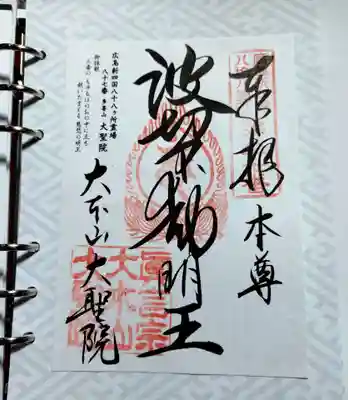 奉拝 本尊
波切不動明王
広島新四国八十八ヶ所霊場
八十七番 多喜山 大聖院
御詠歌
大本山大聖院
眞言宗
大本山